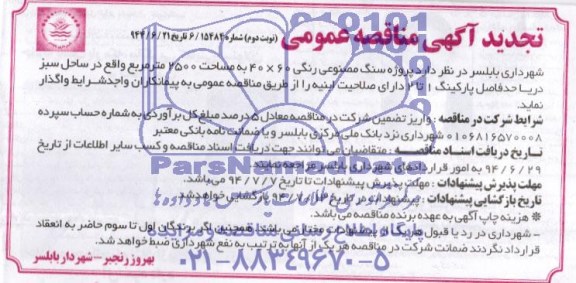 تجدید آگهی مناقصه عمومی (نوبت دوم) شماره ۶/۱۵۴۸۴ تاریخ ۹۴/۶/۲۱
شهرداری بابلسر در نظر دارد پروژه سنگ مصنوعی رنگی ۶۰ × ۴۰ به مساحت ۲۵۰۰ مترمربع واقع در ساحل سبز
دریا حدفاصل پارکینگ ۱ تا ۲ دارای صلاحیت ابنیه را از طریق مناقصه عمومی به پیمانکاران واجدشرایط واگذار
نماید.
شرایط شرکت در مناقصه : واریز تضمین شرکت در مناقصه معادل ۵ درصد مبلغ کل برآوردی به شماره حساب سپرده
۰۱۰۶۸۱۶۵۷۰۰۰۸ شهرداری نزد بانک ملی مرکزی بابلسر و یا ضمانت نامه بانکی معتبر
تاریخ دریافت اسناد مناقصه : متقاضیان می توانند جهت دریافت اسناد مناقصه و کسب سایر اطلاعات از تاریخ
۹۴/۶/۲۹ به امور قراردادهای شهرداری بابلسر مراجعه نمایند
مهلت پذیرش پیشنهادات : مهلت پذیرش پیشنهادات تا تاریخ ۹۴/۷/۷ می‌باشد.
تاریخ بازگشایی پیشنهادات : پیشنهادات در تاریخ بازگشایی خواهد شد
* هزینه چاپ آگهی به عهده برنده مناقصه می باشد.
- شهرداری در رد یا قبول پیشنهادات مختار می باشد. همچنین اگر برندگان اول تا سوم حاضر به انعقاد
قرارداد نگردند ضمانت شرکت در مناقصه هر یک از آنها به ترتیب به نفع شهرداری ضبط خواهد شد.
بهروز رنجبر - شهردار بابلسر
ParsNamadData
۰۲۱-۸۸۳۴۹۶۷۰-۵